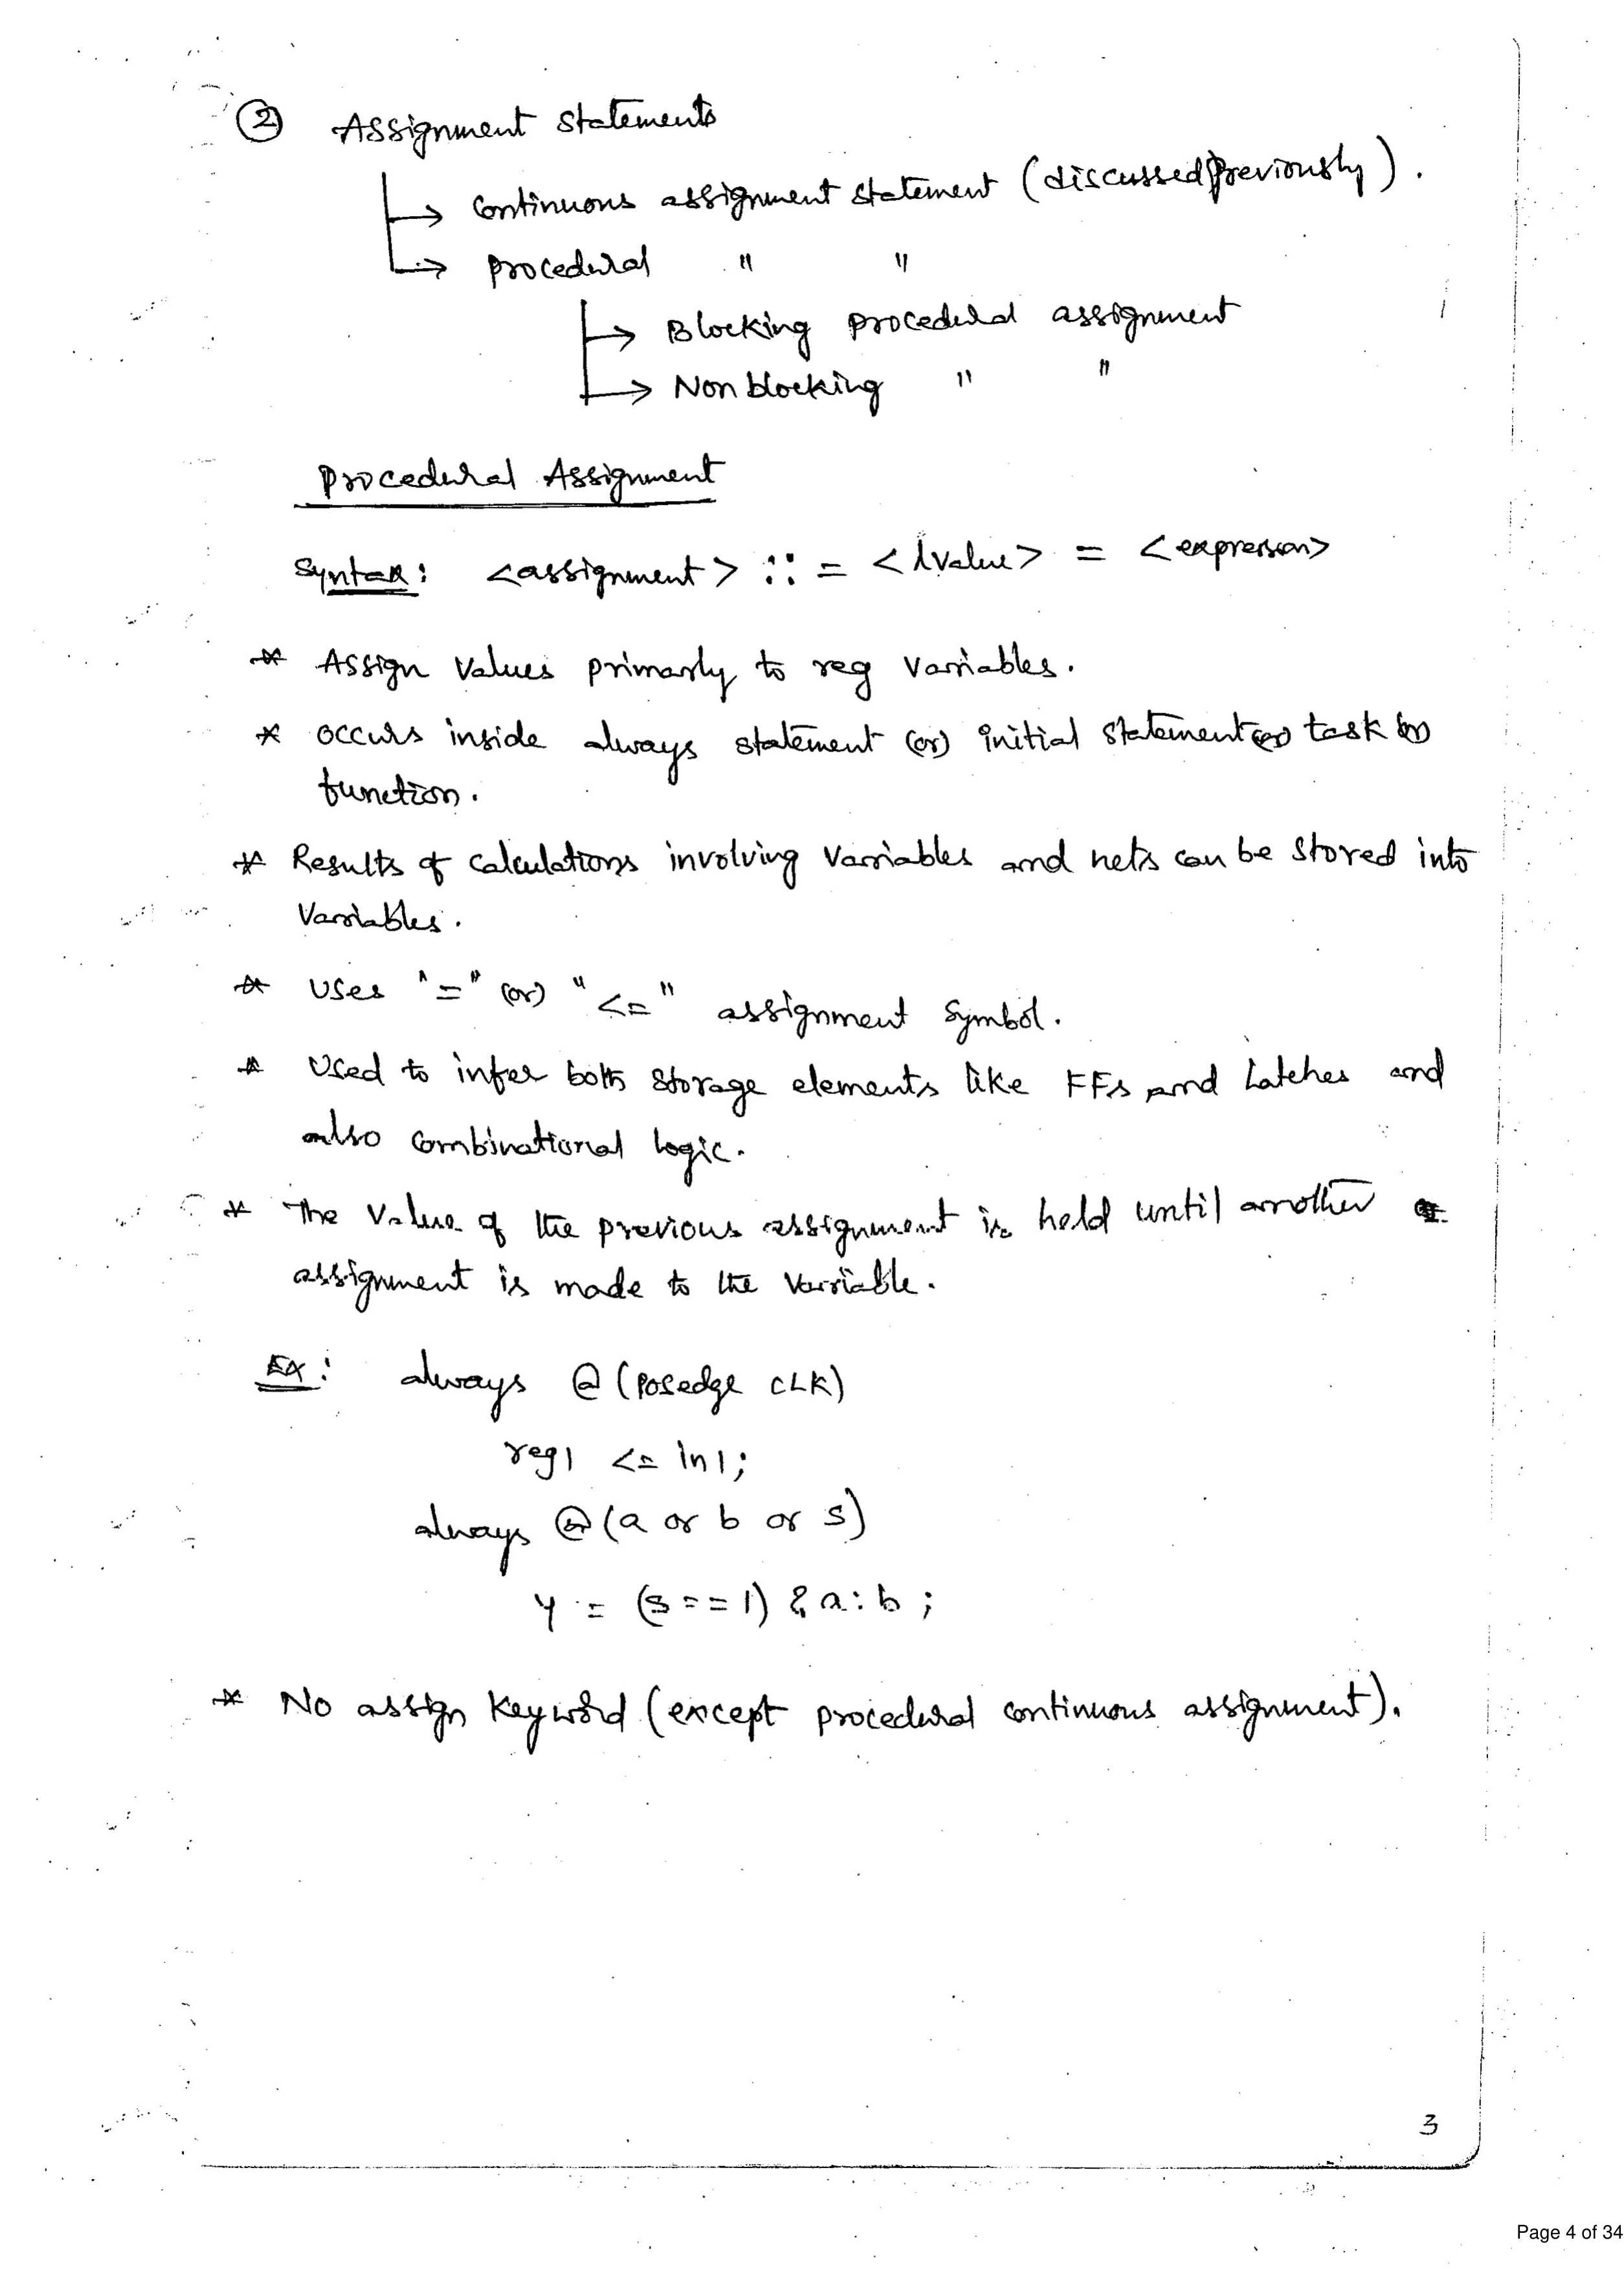 ② Assignment statements
→ continuous assignment statement (discussed previously).
→ procedural " "
→ Blocking procedural assignment
→ Non blocking " "
Procedural Assignment
Syntax: <assignment> ::= <lvalue> = <expression>
* Assign values primarly to reg variables.
* occurs inside always statement (or) initial statement (or) task (or)
function.
* Results of calculations involving variables and nets can be stored into
variables.
* uses "=" (or) "<=" assignment symbol.
* Used to infer both storage elements like FFs and Latches and
also combinational logic.
* The value of the previous assignment is held until another
assignment is made to the variable.
Ex: always @ (posedge CLK)
reg1 <= in1;
always @ (a or b or s)
y = (s==1) & a:b;
* No assign keyword (except procedural continuous assignment).
3
Page 4 of 34